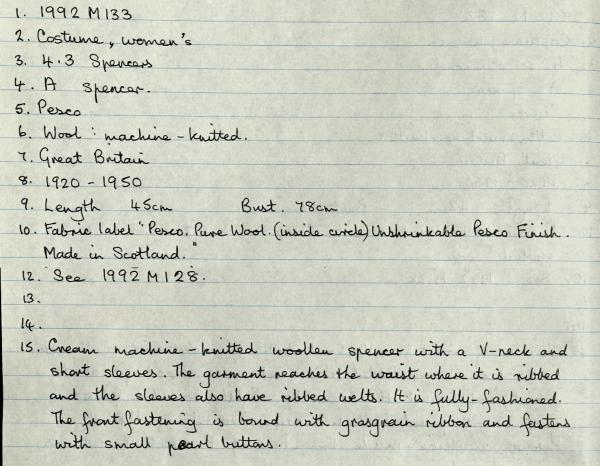 1. 1992 M133
2. Costume, women's
3. 4.3 Spencers
4. A spencer.
5. Pesco
6. Wool : machine-knitted.
7. Great Britain
8. 1920 - 1950
9. Length 45cm Bust. 78cm
10. Fabric label "Pesco. Pure Wool. (inside circle) Unshrinkable Pesco Finish.
Made in Scotland."
12. See 1992 M128.
13.
14.
15. Cream machine-knitted woollen spencer with a V-neck and
short sleeves. The garment reaches the waist where it is ribbed
and the sleeves also have ribbed welts. It is fully-fashioned.
The front fastening is bound with grasgrain ribbon and fastens
with small pearl buttons.